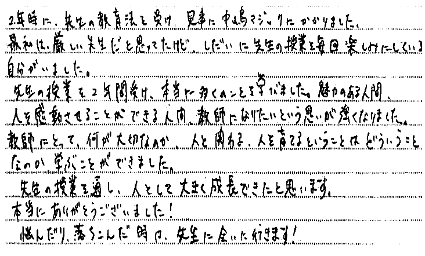 2年時に、先生の教育法を受け 見事に中嶋マジックにかかりました。
最初は、厳しい先生だと思ってたけど、しだいに先生の授業を毎回楽しみにしている
自分がいました。
先生の授業を2年間受け、本当に多くのことを学びました。魅力のある人間、
人を感動させることができる人間、教師になりたいという思いが強くなりました。
教師にとって、何が大切なのか、人と関わる、人を育てるということはどういうこと
なのか 学ぶことができました。
先生の授業を通し、人として大きく成長できたと思います。
本当にありがとうございました!
悩んだり、落ちこんだ時は、先生に会いに行きます!